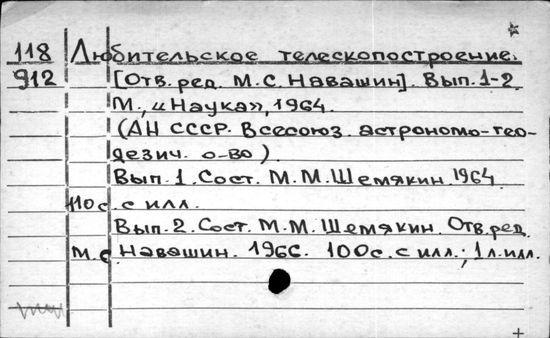 118 Любительское телескопостроение.
912 [Отв. ред. М.С. Навашин]. Вып. 1-2
М., «Наука», 1964.
(АН СССР. Всесоюз. астрономо-гео-
дезич. о-во)
Вып. 1. Сост. М.М. Шемякин. 1964.
110 с. с илл.
Вып. 2. Сост. М.М. Шемякин. Отв. ред.
М.С. Навашин. 1966. 100 с. с илл.; 1 л. илл.